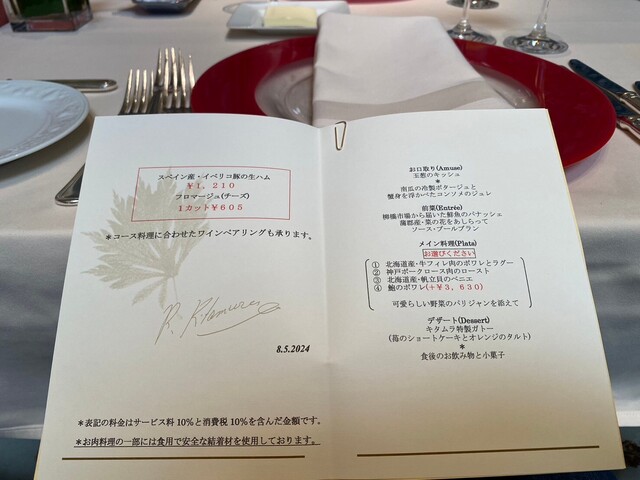 スペイン産・イベリコ豚の生ハム
￥１，２１０
フロマージュ(チーズ)
１カット￥６０５
＊コース料理に合わせたワインペアリングも承ります。
R. Kitamura
8.5.2024
＊表記の料金はサービス料10%と消費税10%を含んだ金額です。
＊お肉料理の一部には食用で安全な結着材を使用しております。
お口取り(Amuse)
玉葱のキッシュ
＊
南瓜の冷製ポタージュと
蟹身を浮かべたコンソメのジュレ
前菜(Entrée)
柳橋市場から届いた鮮魚のパナッシェ
蒲郡産・菜の花をあしらって
ソース・ブールブラン
メイン料理(Plats)
お選びください
① 北海道産・牛フィレ肉のポワレとラグー
② 神戸ポークロース肉のロースト
③ 北海道産・帆立貝のベニエ
④ 鮑のポワレ(+￥３，６３０)
可愛らしい野菜のパリジャンを添えて
デザート(Dessert)
キタムラ特製ガトー
(苺のショートケーキとオレンジのタルト)
＊
食後のお飲み物と小菓子